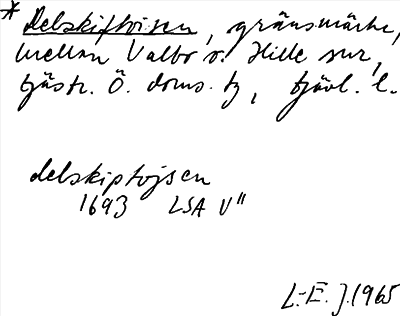 * Delskiftöisen, gränsmärke,
mellan Valbo o. Hille snr,
Gästr. Ö. doms. tg, Gävl. l.
delskiptöjsen
1693 LSA V"
L.-E. J. 1965